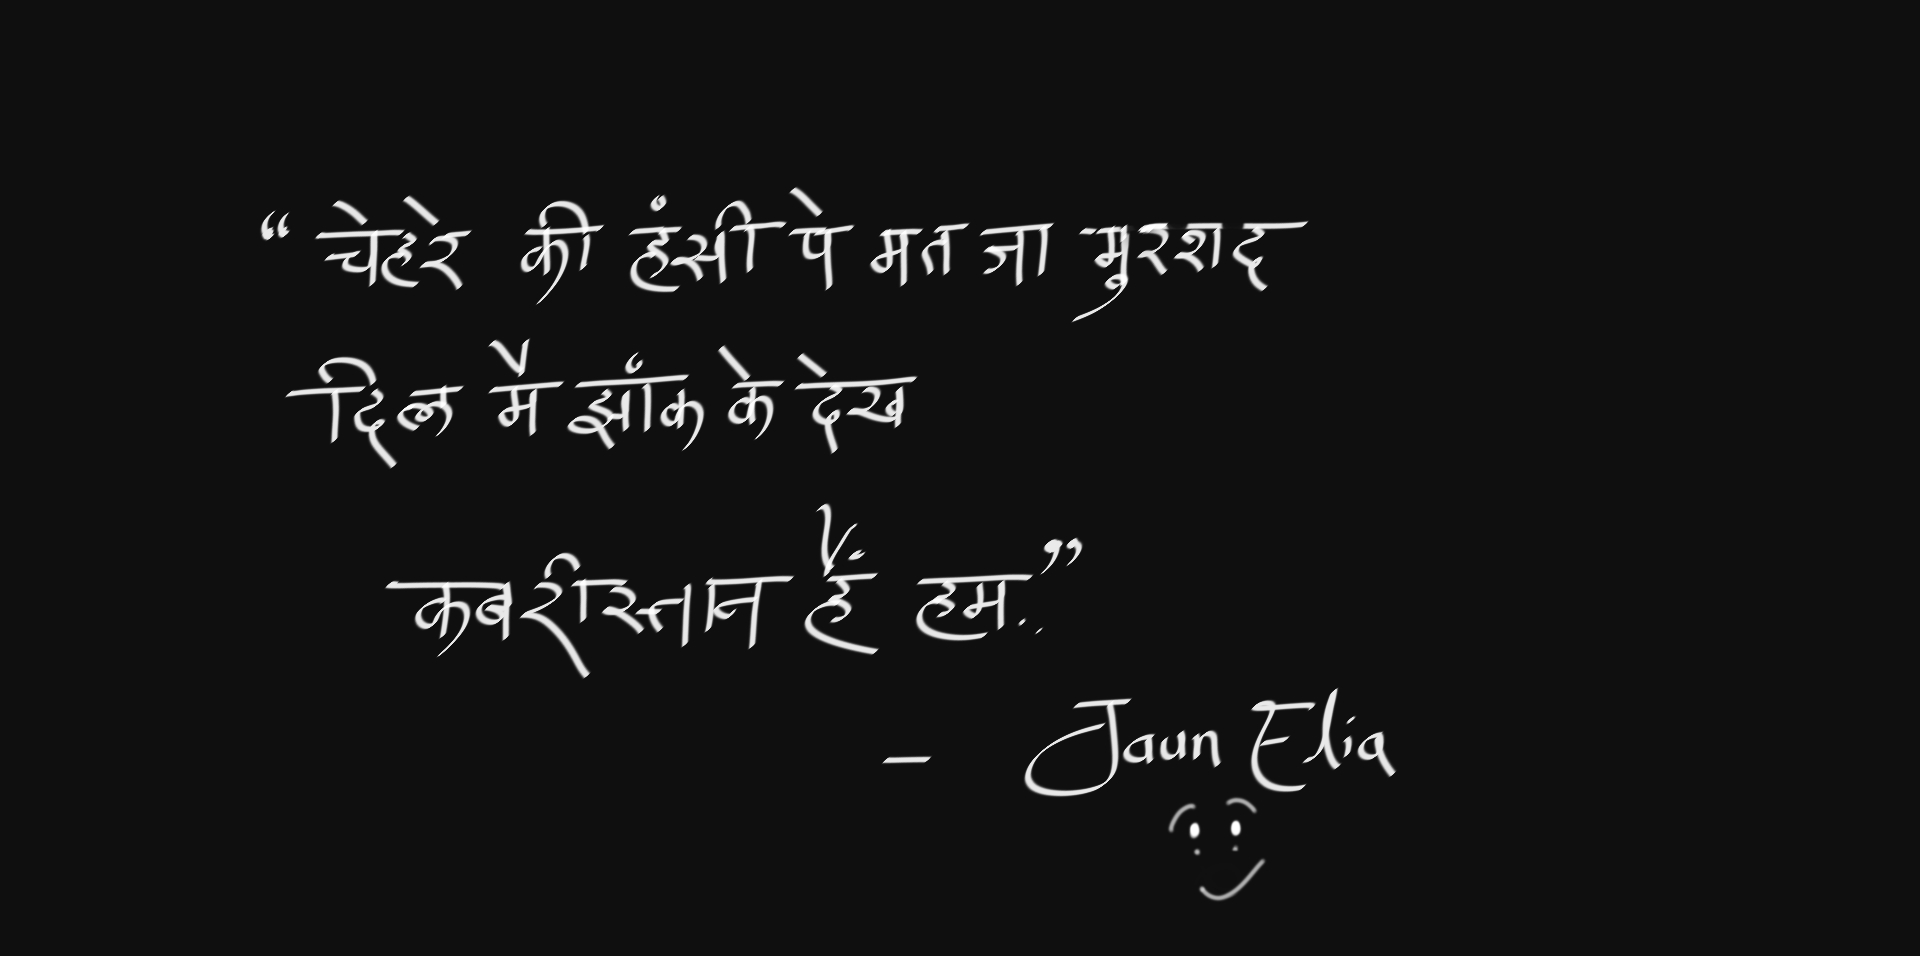 “ चेहरे की हंसी पे मत जा मुरशद
दिल मै झांक के देख
कबरीस्तान हैं हम..”
— Jaun Elia